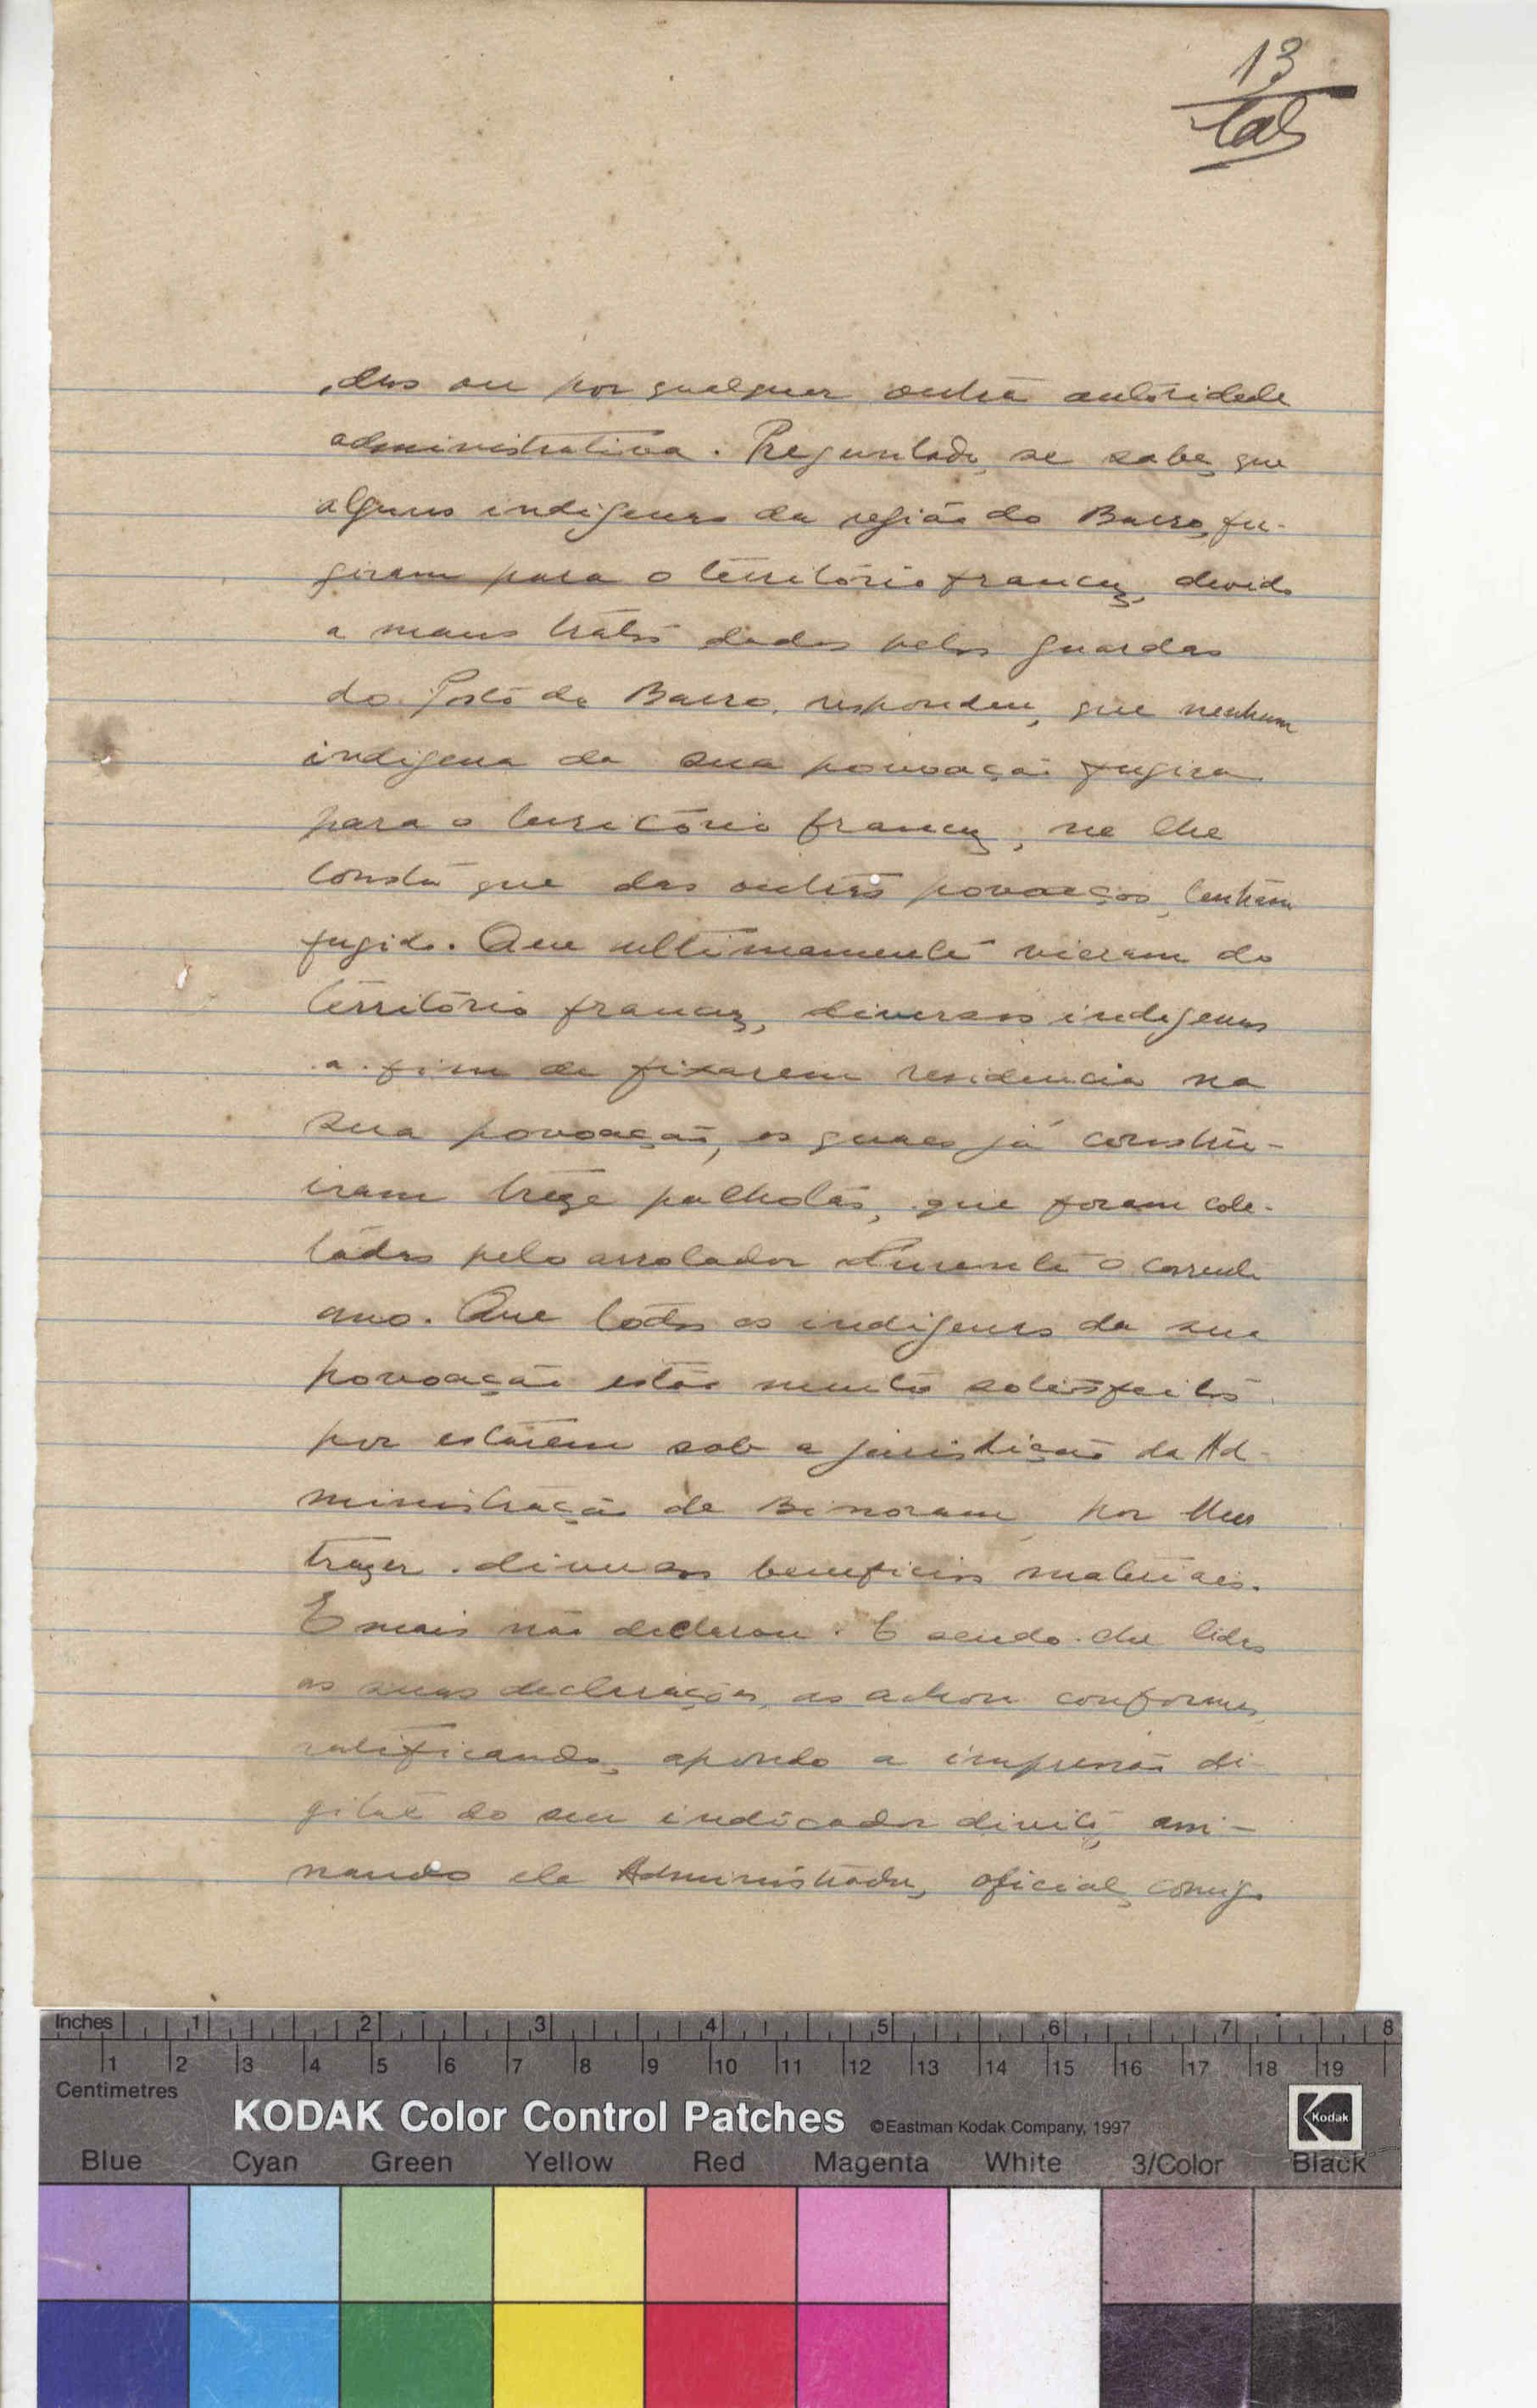 13
das ou por qualquer outra autoridade
administrativa. Preguntado, se sabe, que
alguns indigenas da região do Barro, fu-
giram para o território francez, devido
a maus tratos dados pelos guardas
do Posto de Barro, respondeu, que nenhum
indigena da sua povoação fugira
para o território francez, ne lhe
consta que das outras povoações, tenham
fugido. Que ultimamente vieram do
território francez, diversos indigenas
a fim de fixarem residencia na
sua povoação, os quaes já constru-
iram treze palhotas, que foram cole-
tadas pelo arrolador durante o corrente
ano. Que todos os indigenas da sua
povoação estão muito satisfeitos
por estarem sob a jurisdição da Ad-
ministração de Binoram, por lhes
trazer diversos beneficios materiaes.
E mais não declarou. E sendo-lhe lidas
as suas declarações, as achou conformes,
ratificando, apondo a impressão di-
gital do seu indicador direito, assi-
nando ele Administrador, oficial, comigo
Inches 1 2 3 4 5 6 7 8
1 2 3 4 5 6 7 8 9 10 11 12 13 14 15 16 17 18 19
Centimetres
KODAK Color Control Patches ©Eastman Kodak Company, 1997
Kodak
Blue Cyan Green Yellow Red Magenta White 3/Color Black